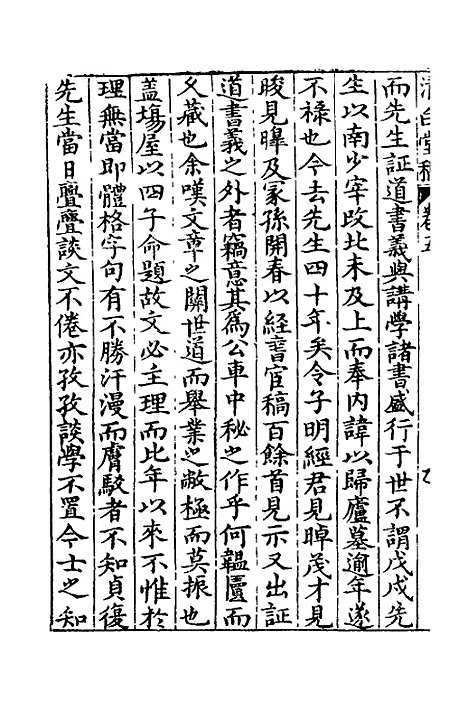 清白堂稿 卷五
而先生証道書義與講學諸書盛行于世不謂戊戌先
生以南少宰改北未及上而奉内諱以歸廬墓逾年遂
不禄也今去先生四十年矣令子明經君見晫茂才見
睃見皡及冡孫開春以經書官稿百餘首見示又出証
道書義之外者竊意其為公車中秘之作乎何韞匵而
乆藏也余嘆文章之關世道而舉業之敝極而莫振也
盖塲屋以四子命題故文必主理而比年以來不惟於
理無當即體格字句有不勝汗漫而膚駁者不知貞復
先生當日亹亹談文不倦亦孜孜談學不置今士之知